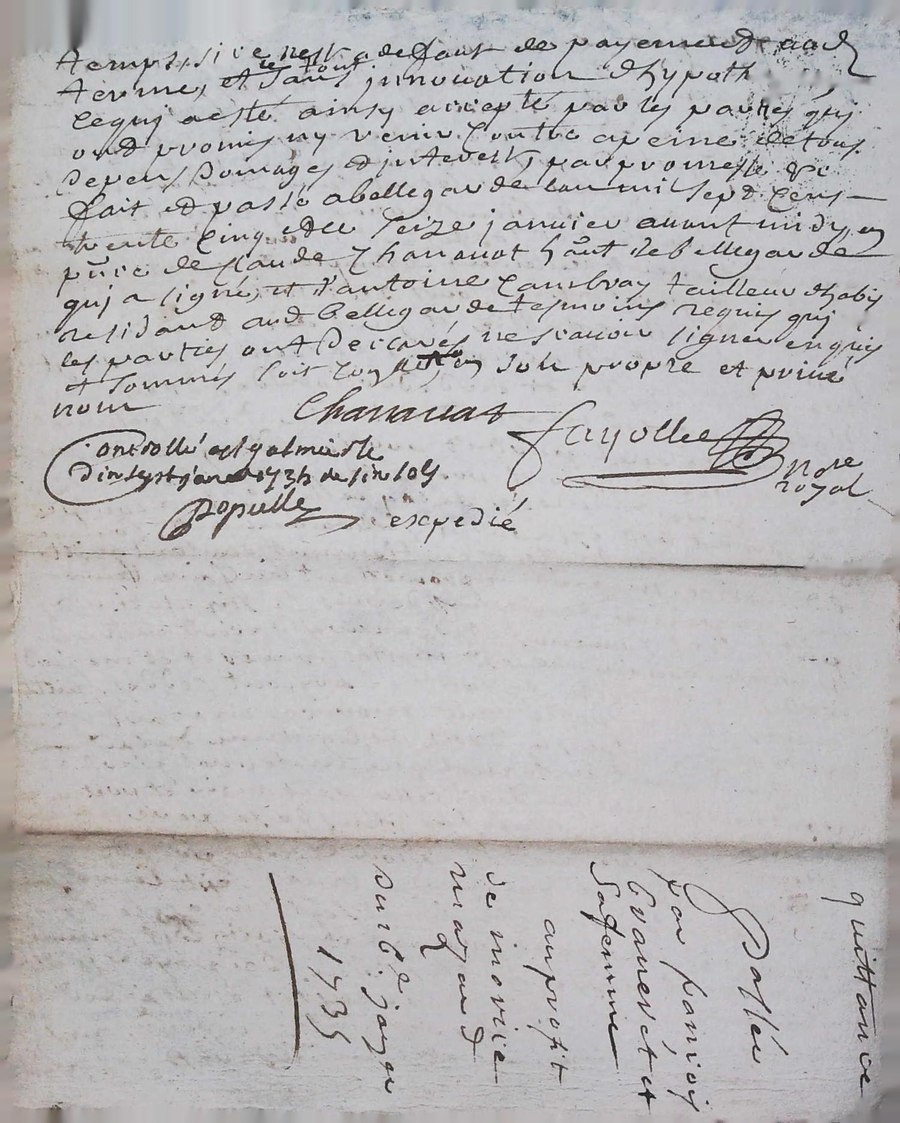 temps, si ce nest a defaut de payement aud
terme, et sans innovation dhypoth
ce qui a esté ainsy accepté par les parties qui
ont promis ny venir contre a peine de tous
depens domages et interests, par promesse &c
fait et passé a bellegarde lan mil sept cens
trente cinq et le seize janvier avant midy en
pnce de claude Chananat de bellegarde
qui a signé, et dantoine Cambray tailleur dhabis
residant aud bellegarde tesmoins requis qui
les parties ont declarés ne scavoir signer enquis
et sommés soit en son propre et privé
nom
Chananat
fayolle
nore
royal
Controllé a st galmier le
1735
Populle
expedié
quittance
Passée
par
sa femme
au profit
de
1735